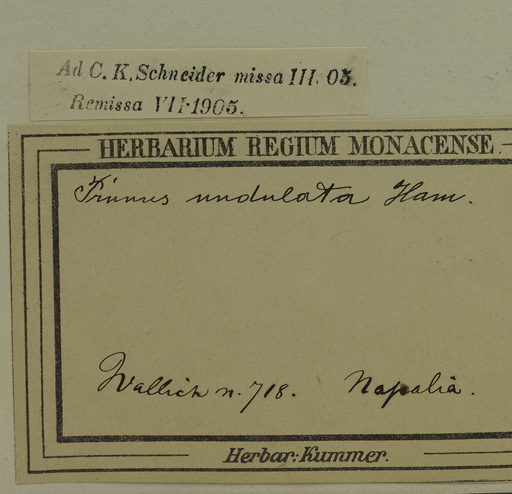 Ad C. K. Schneider missa III. 05.
Remissa VII·1905.
HERBARIUM REGIUM MONACENSE.
Prunus undulata Ham.
Wallich n. 718. Napalia.
Herbar: Kummer.